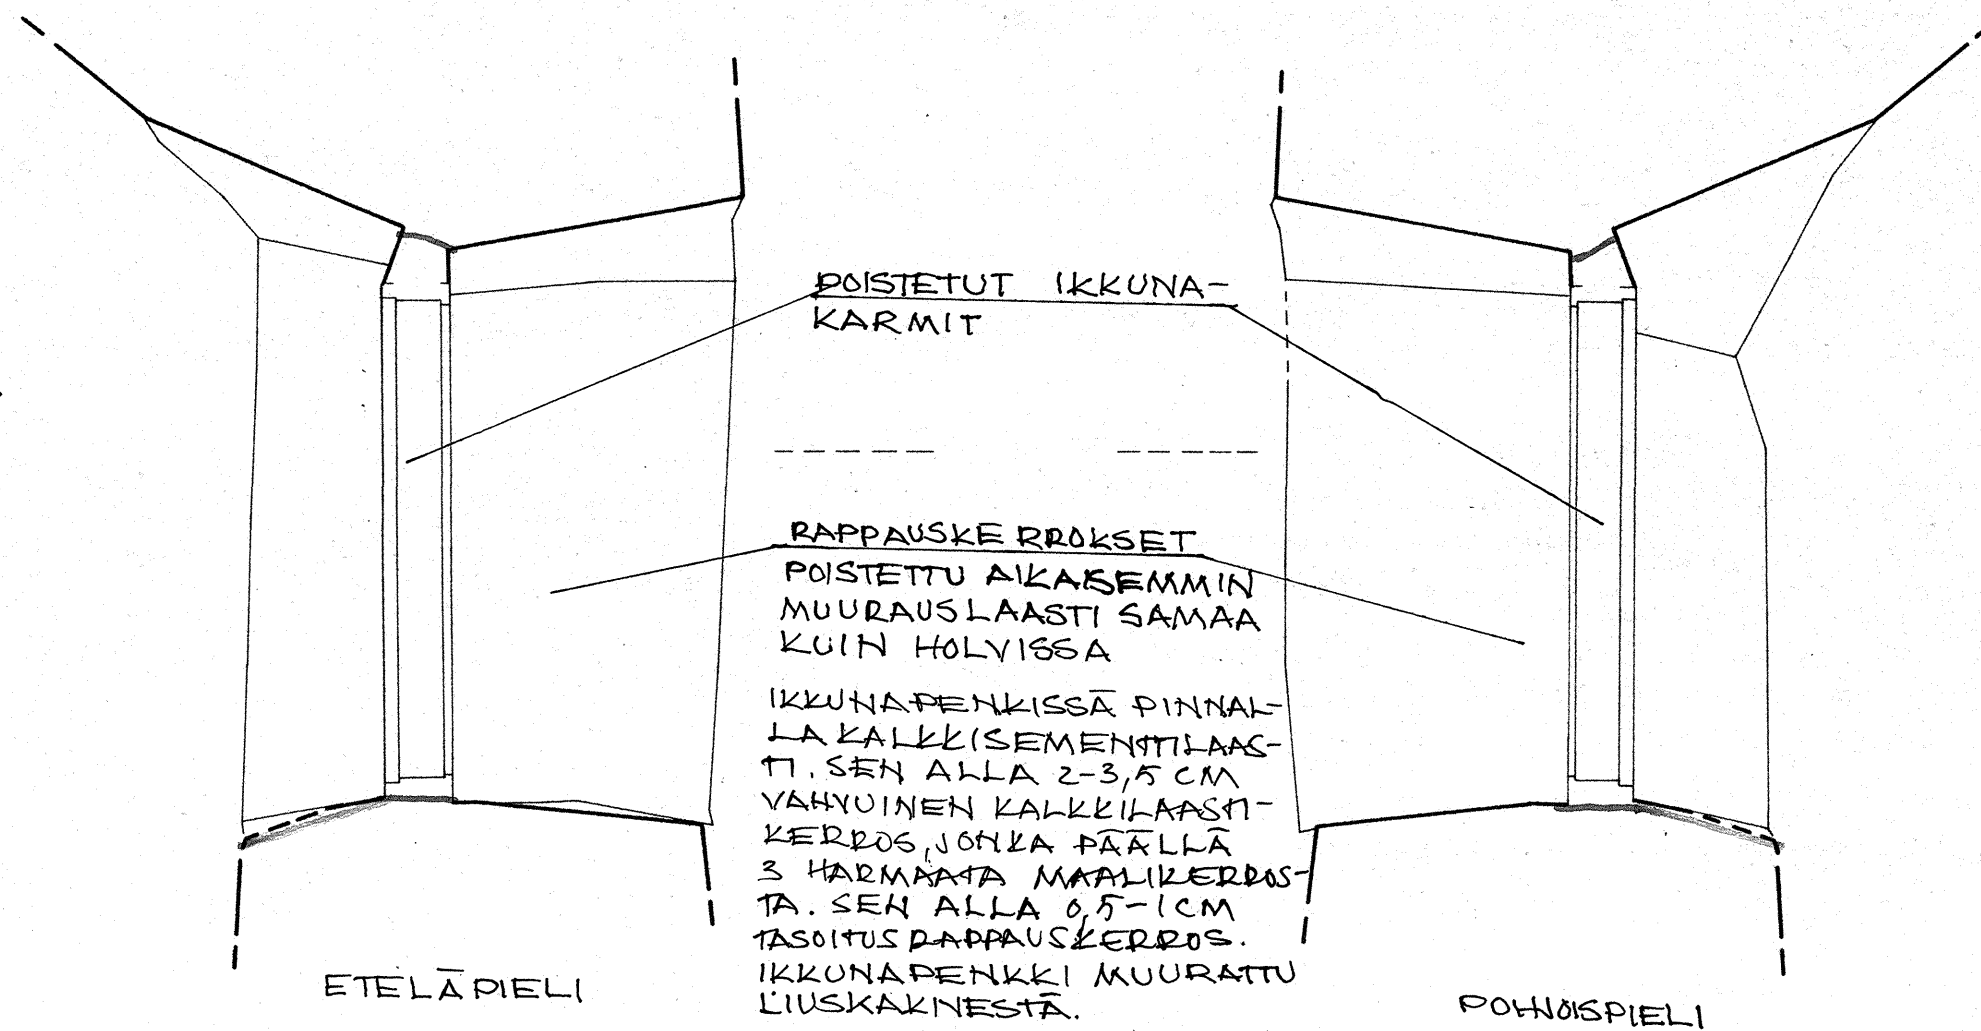 POISTETUT IKKUNA-
KARMIT
RAPPAUSKERROKSET
POISTETTU AIKAISEMMIN
MUURAUSLAASTI SAMAA
KUIN HOLVISSA
IKKUNAPENKISSÄ PINNAL-
LA KALKKISEMENTTILAAS-
TI. SEN ALLA 2-3,5 CM
VAHVUINEN KALKKILAASTI-
KERROS, JONKA PÄÄLLÄ
3 HARMAATA MAALIKERROS-
TA. SEN ALLA 0,5-1CM
TASOITUSRAPPAUSKERROS.
IKKUNAPENKKI MUURATTU
LIUSKAKIVESTÄ.
ETELÄPIELI
POHJOISPIELI